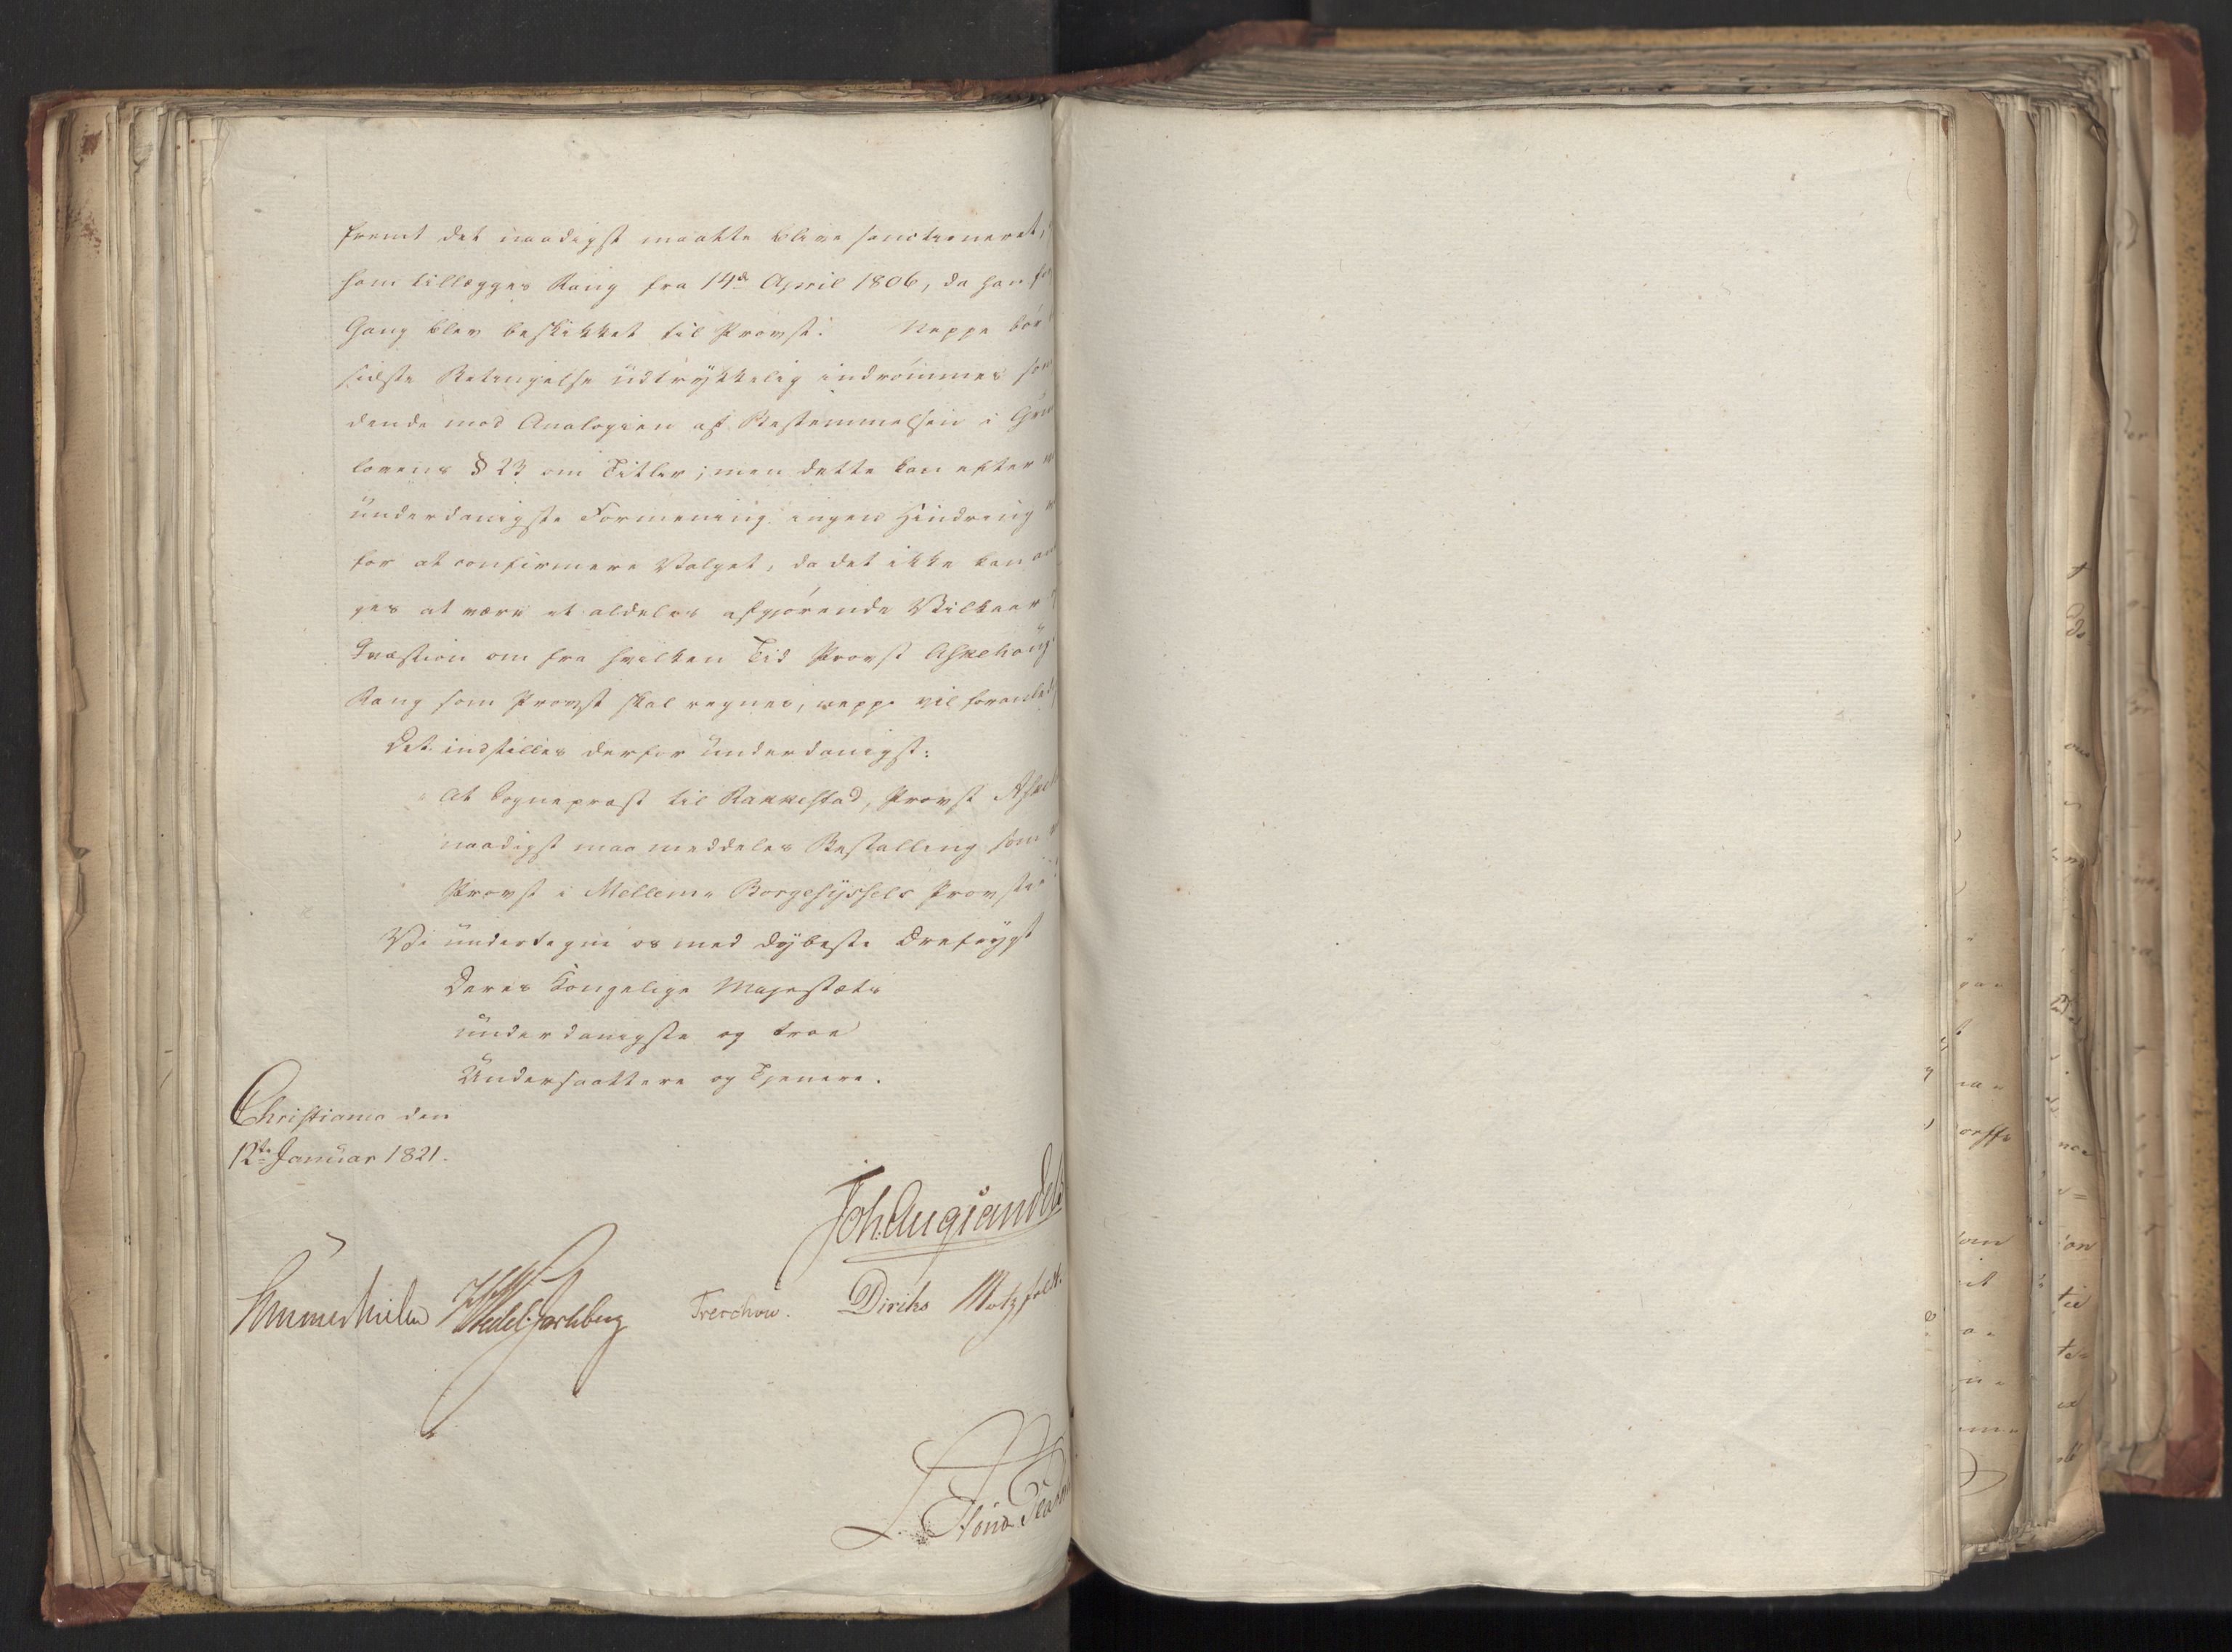 fremt det naadigst maatte blive sanctioneret,
ham tillægges Rang fra 14de April 1806, da han
Gang blev beskikket til Provst. Neppe bör
sidste Betingelse udtrykkelig indrömmes
dende mod Analogien af Bestemmelsen i
lovens § 23 om Titler; men dette kan efter
underdanigste Formening ingen Hindring
for at confirmere Valget, da det ikke kan
ges at være et aldeles afgjörende Vilkaar
Qvæstion om fra hvilken Tid Provst Askehoug
Rang som Provst skal regnes, neppe vil
Det indstilles derfor underdanigst:
At Sognepræst til Rakkestad, Provst
naadigst maa meddeles Bestalling som
Provst i Mellem- Borgesyssels Provstie
Vi undertegne os med dybeste Ærefrygt
Deres Kongelige Majestæts
underdanigste og troe
Undersaattere og Tjenere.
Christiania den
12te Januar 1821.
Joh. Aug Sandels
Sommerhielm Wedel-Jarlsberg Treschow. Diriks Motzfeldt.